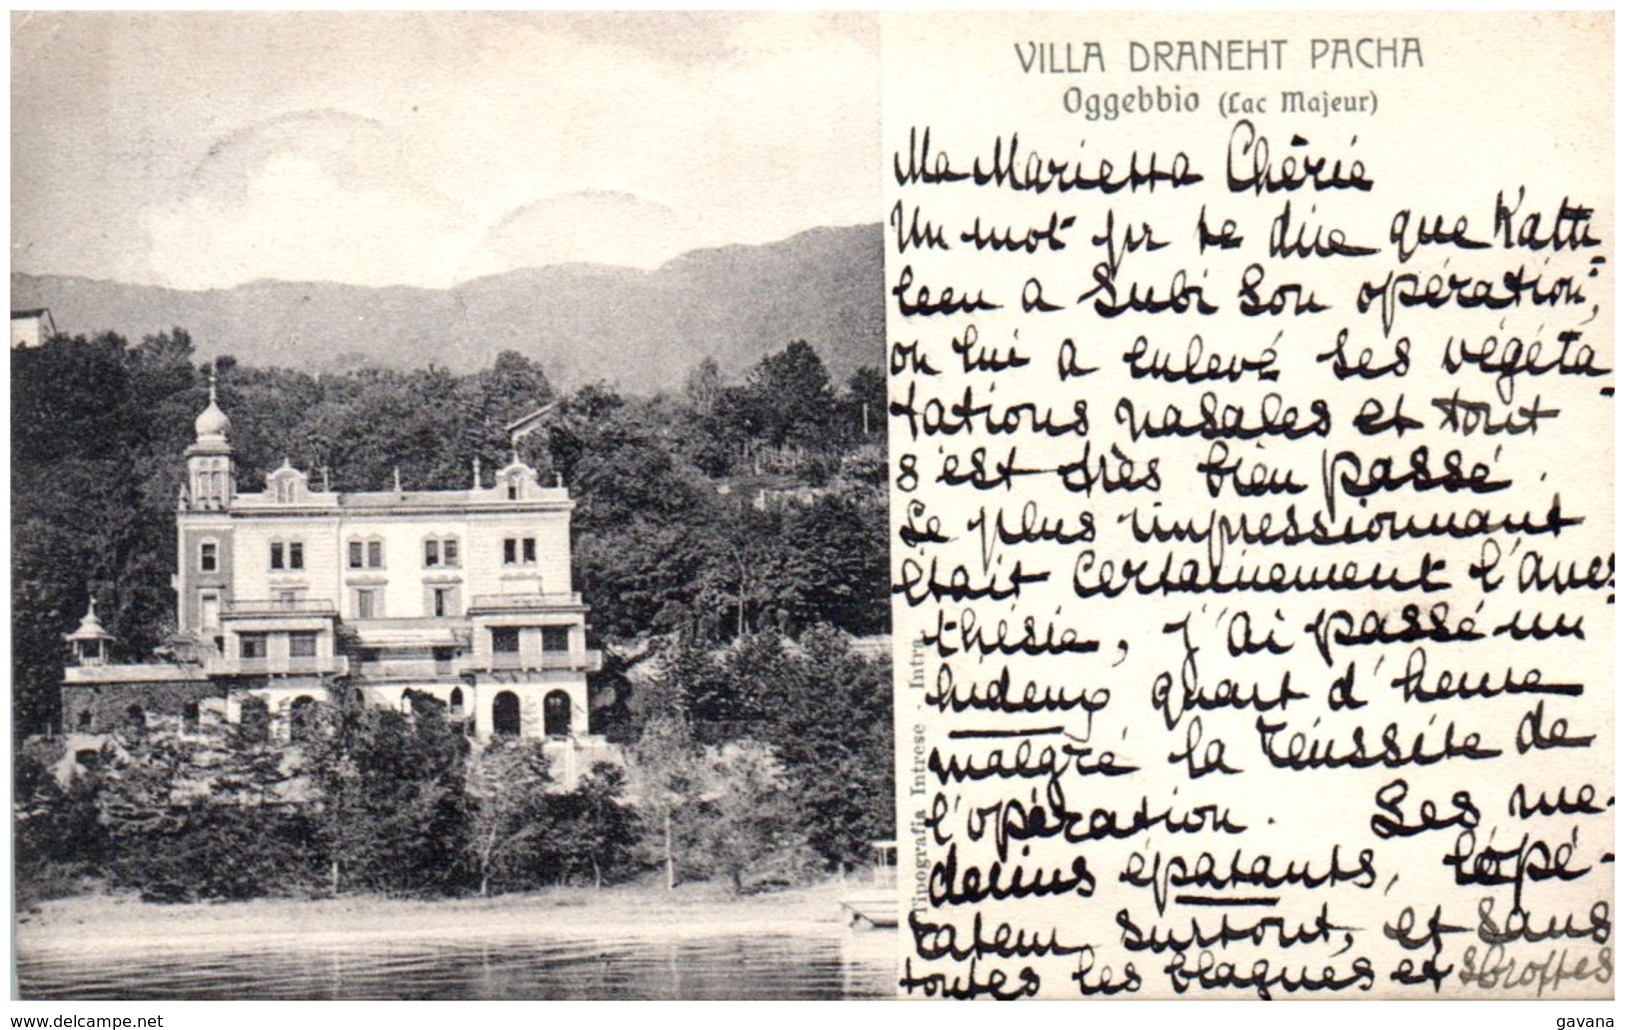 VILLA DRANEHT PACHA
Oggebbio (Lac Majeur)
Ma Marietta Chérie
Un mot pr te dire que Kath
leen a subi son opération,
on lui a enlevé ses végéta-
tations nasales et tout
s'est très bien passé.
Le plus impressionnant
était certainement l'anes-
thésie, j'ai passé un
hideux quart d'heure
malgré la réussite de
l'opération. Les mé-
decins épatants, l'opé-
rateur surtout, et sans
toutes les blagues et
Tipografia Intrese - Intra.
www.delcampe.net
gavana